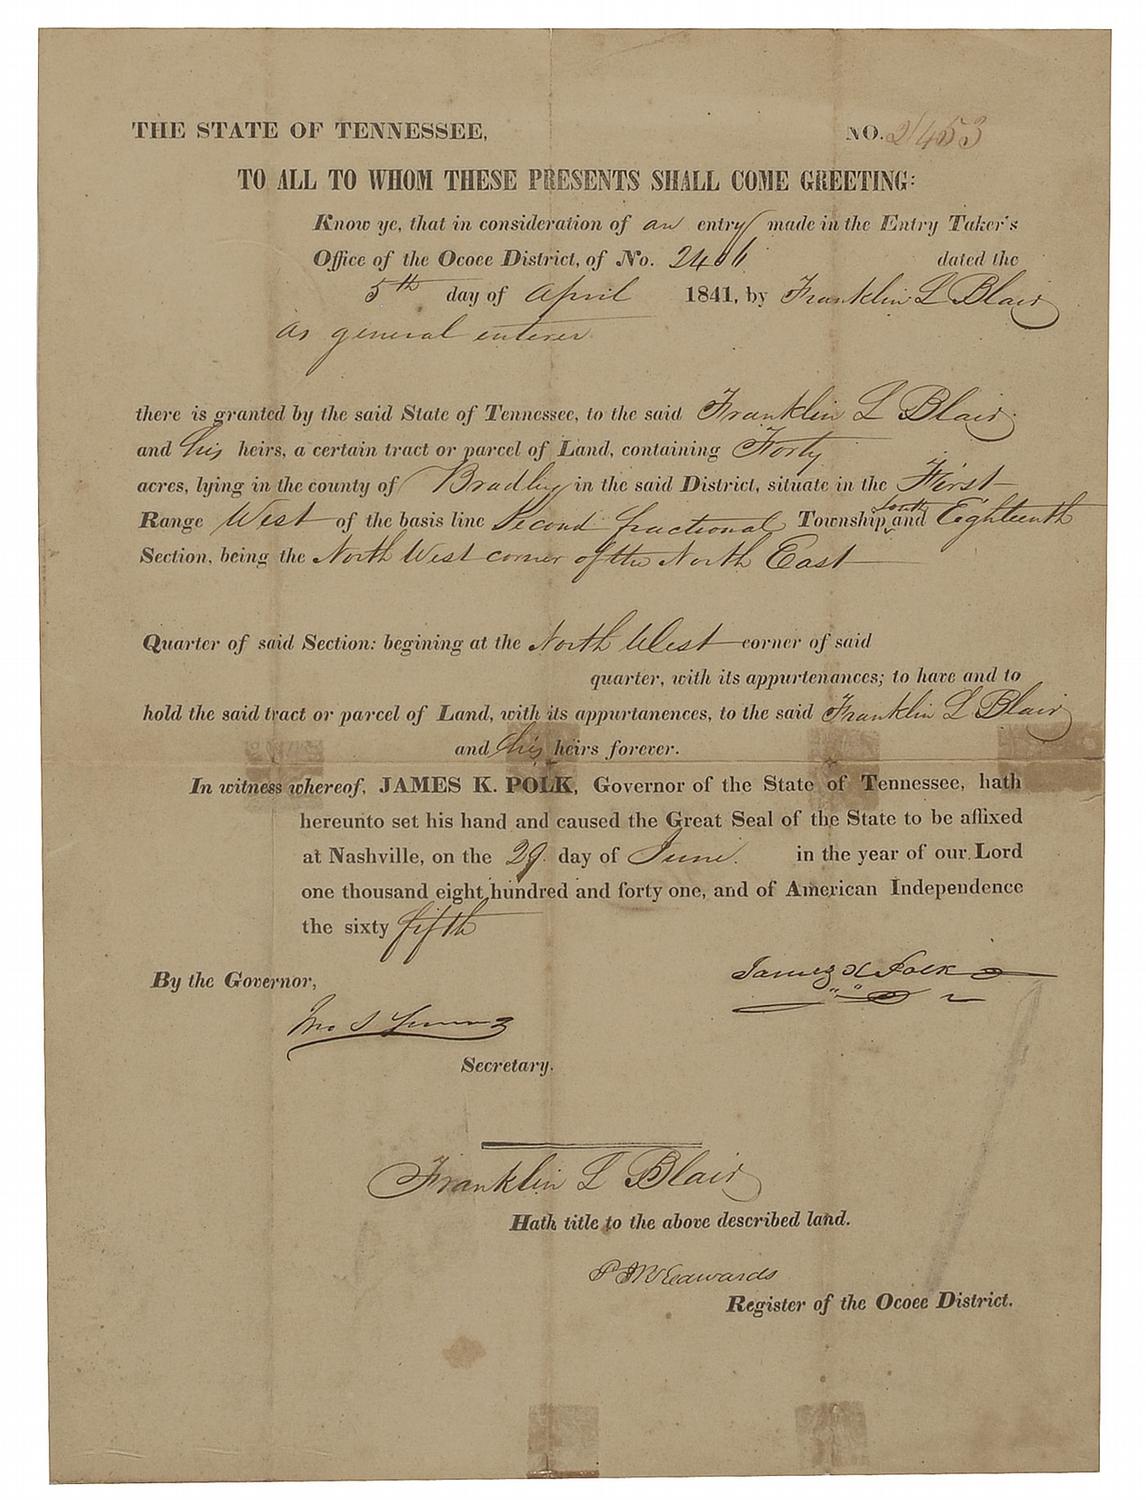 THE STATE OF TENNESSEE, NO. 2453
TO ALL TO WHOM THESE PRESENTS SHALL COME GREETING:
Know ye, that in consideration of an entry made in the Entry Taker's
Office of the Ocoee District, of No. dated the
5th day of April 1841, by Franklin L Blair
as general enterer
there is granted by the said State of Tennessee, to the said Franklin L Blair
and his heirs, a certain tract or parcel of Land, containing Forty
acres, lying in the county of Bradley in the said District, situate in the First
Range West of the basis line Second fractional Township south and Eighteenth
Section, being the North West corner of the North East
Quarter of said Section: begining at the North West corner of said
quarter, with its appurtenances; to have and to
hold the said tract or parcel of Land, with its appurtanences, to the said Franklin L Blair
and his heirs forever.
In witness whereof, JAMES K. POLK, Governor of the State of Tennessee, hath
hereunto set his hand and caused the Great Seal of the State to be affixed
at Nashville, on the 29 day of June. in the year of our Lord
one thousand eight hundred and forty one, and of American Independence
the sixty fifth
James K Polk
By the Governor,
Jno S Young
Secretary.
Franklin L Blair
Hath title to the above described land.
Edwards
Register of the Ocoee District.